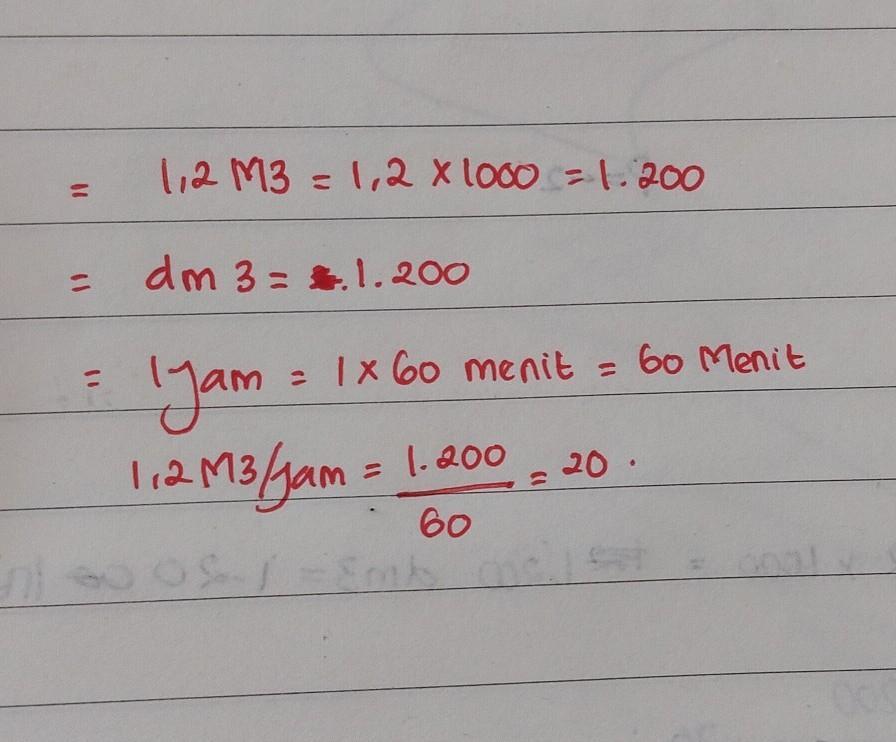 = 1,2 M3 = 1,2 x 1000 = 1.200
= dm 3 = .1.200
= 1 jam = 1 x 60 menit = 60 Menit
1,2 M3/jam = 1.200 = 20 .
60